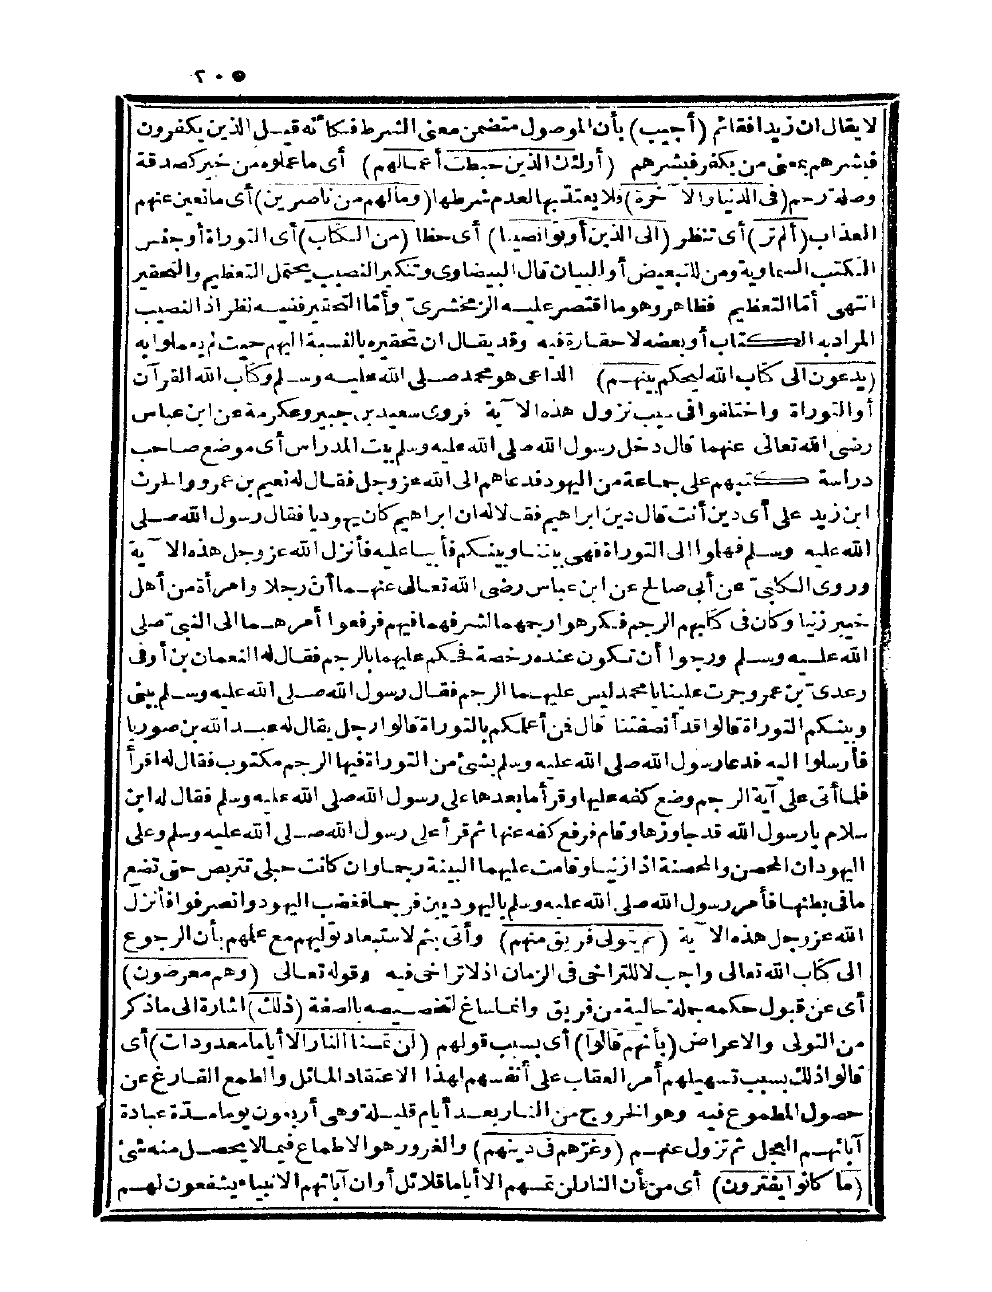 ٢٠٥
لا يقال ان زيدا فقائم (أجيب) بأن الموصول متضمن معنى الشرط فكأنه قيل الذين يكفرون
فبشرهم بمعنى من يكفر فبشرهم (أولئك الذين حبطت أعمالهم) أى ما عملوه من خير كصدقة
وصلة رحم (فى الدنيا والآخرة) فلا يعتد بها لعدم شرطها (وما لهم من ناصرين) أى مانعين عنهم
العذاب (ألم تر) أى تنظر (الى الذين أوتوا نصيبا) أى حظا (من الكتاب) أى التوراة أو جنس
الكتب السماوية ومن للتبعيض أو البيان قال البيضاوى وتنكير النصيب يحتمل التعظيم والتحقير
انتهى أمّا التعظيم فظاهر وهو ما اقتصر عليه الزمخشرى وأمّا التحقير ففيه نظر اذ النصيب
المراد به الكتاب أو بعضه لا حقارة فيه وقد يقال ان تحقيره بالنسبة اليهم حيث لم يعملوا به
(يدعون الى كتاب الله ليحكم بينهم) الداعى هو محمد صلى الله عليه وسلم وكتاب الله القرآن
أو التوراة واختلفوا فى سبب نزول هذه الآية فروى سعيد بن جبير وعكرمة عن ابن عباس
رضى الله تعالى عنهما قال دخل رسول الله صلى الله عليه وسلم بيت المدراس أى موضع صاحب
دراسة كتبهم على جماعة من اليهود فدعاهم الى الله عز وجل فقال له نعيم بن عمرو والحرث
ابن زيد على أى دين أنت قال دين ابراهيم فقالا له ان ابراهيم كان يهوديا فقال رسول الله صلى
الله عليه وسلم فهلموا الى التوراة فهى بيننا وبينكم فأبيا عليه فأنزل الله عز وجل هذه الآية
وروى الكلبىّ عن أبى صالح عن ابن عباس رضى الله تعالى عنهما أنّ رجلا وامرأة من أهل
خيبر زنيا وكان فى كتابهم الرجم فكرهوا رجمهما لشرفهما فيهم فرفعوا أمرهما الى النبىّ صلى
الله عليه وسلم ورجوا أن تكون عنده رخصة فحكم عليهما بالرجم فقال له النعمان بن أوفى
وعدىّ بن عمرو جرت علينا يا محمد ليس عليهما الرجم فقال رسول الله صلى الله عليه وسلم بينى
وبينكم التوراة قالوا قد أنصفتنا قال فمن أعلمكم بالتوراة قالوا رجل يقال له عبد الله بن صوريا
فأرسلوا اليه فدعا رسول الله صلى الله عليه وسلم بشئ من التوراة فيها الرجم مكتوب فقال له اقرأ
فلما أتى على آية الرجم وضع كفه عليها وقرأ ما بعدها على رسول الله صلى الله عليه وسلم فقال له ابن
سلام يا رسول الله قد جاوزها وقام فرفع كفه عنها ثم قرأ على رسول الله صلى الله عليه وسلم وعلى
اليهود ان المحصن والمحصنة اذا زنيا وقامت عليهما البينة رجما وان كانت حبلى تتربص حتى تضع
ما فى بطنها فأمر رسول الله صلى الله عليه وسلم باليهوديين فرجما فغضب اليهود وانصرفوا فأنزل
الله عز وجل هذه الآية (ثم يتولى فريق منهم) وأتى بثم لاستبعاد توليهم مع علمهم بأن الرجوع
الى كتاب الله تعالى واجب لا للتراخى فى الزمان اذ لا تراخى فيه وقوله تعالى (وهم معرضون)
أى عن قبول حكمه جملة حالية من فريق وانما ساغ لتخصيصه بالصفة (ذلك) اشارة الى ما ذكر
من التولى والاعراض (بأنهم قالوا) أى بسبب قولهم (لن تمسنا النار الا أياما معدودات) أى
قالوا ذلك بسبب تسهيلهم أمر العقاب على أنفسهم لهذا الاعتقاد المائل والطمع الفارغ عن
حصول المطموع فيه وهو الخروج من النار بعد أيام قليلة وهى أربعون يوما مدّة عبادة
آبائهم العجل ثم تزول عنهم (وغرّهم فى دينهم) والغرور هو الاطماع فيما لا يحصل منه شئ
(ما كانوا يفترون) أى من أن النار لن تمسهم الا أياما قلائل أو ان آبائهم الانبياء يشفعون لهم